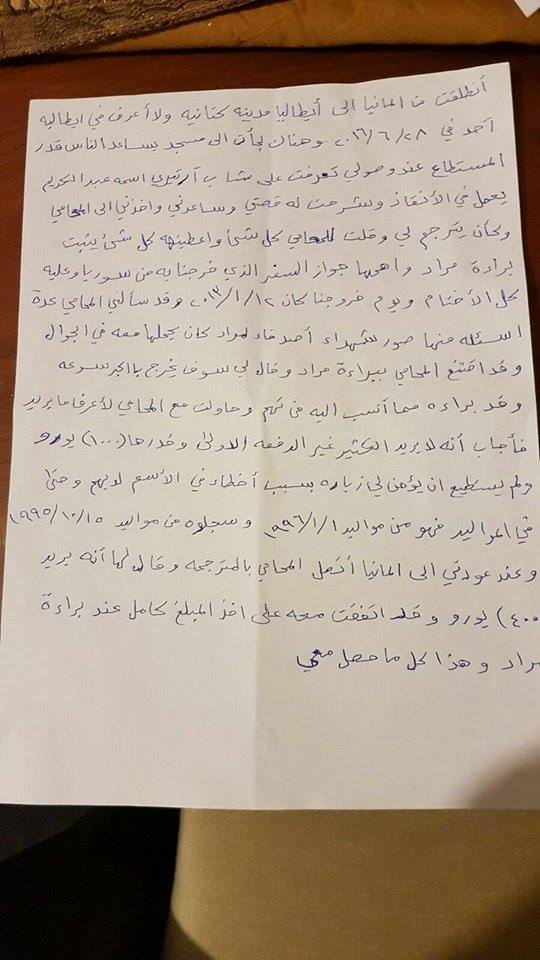 أنطلقت من المانيا الى أيطاليا مدينه كتانيه ولا أعرف في ايطاليه
احد في ٢٠١٦/٦/٢٨ وهناك لجأت الى مسجد يساعد الناس قدر
المستطاع عند وصولي تعرفت على شاب اسمه عبد الكريم
يعمل في الأنقاذ وشرحت له قصتي وساعدني واخذني الى المحامي
وكأن يترجم لي وقلت للمحامي كل شئ واعطيته كل شئ يثبت
براءة مراد واهمها جواز السفر الذي خرجنا به من سوريا وعليه
كل الأختام ويوم خروجنا كان ٢٠١٣/١/١٢ وقد سألني المحامي عدة
اسئله منها صور شهداء أصدقاء لمراد كان يحملها معه في الجوال
وقد اقتنع المحامي ببراءة مراد وقال لي سوف يخرج باكبر سرعه
وقد براءه مما أنسب اليه من تهم وحاولت مع المحامي لأعرف ما يريد
فأجاب أنه لا يريد الكثير غير الدفعه الاولى وقدرها (١٠٠٠) يورو
ولم يستطيع ان يؤمن لي زياره بسبب أخطاء في الأسم لديهم وحتى
في المواليد فهو من مواليد ١٩٩٦/١/١ وسجلوه من مواليد ١٩٩٥/١٠/١٥
وعند عودتي الى المانيا أتصل المحامي بالمترجمه وقال لها أنه يريد
٤٠٠٠) يورو وقد اتفقت معه على اخذ المبلغ كامل عند براءة
مراد وهذا كل ما حصل معي